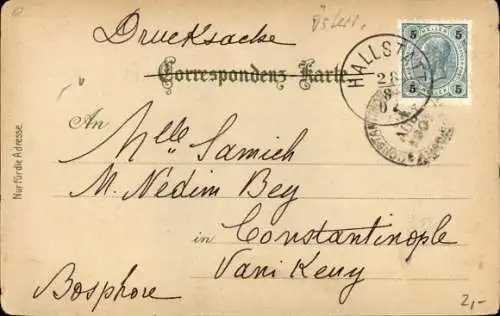 Österr.
Drucksache
5 5
5 5
HALLSTATT
28
8
Correspondenz-Karte
An
Nur für die Adresse.
Mlle Samich
M. Nedim Bey
in Constantinople
Vani Keuy
Bosphore
2,-